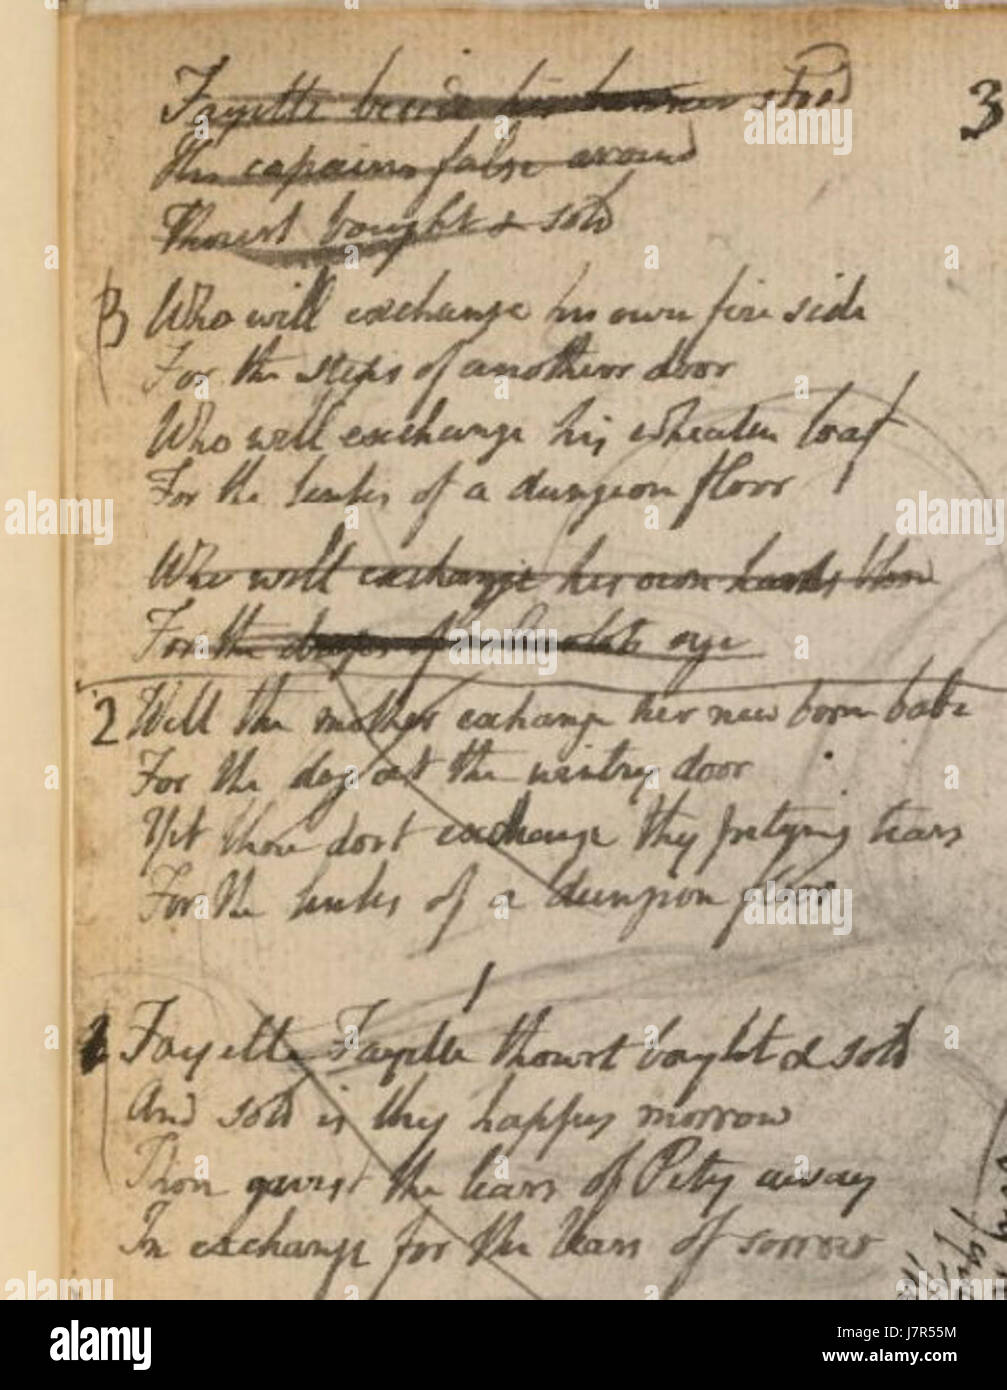 3
Fayette beside his banner stood
His captains false around
Thourt bought & sold
3 Who will exchange his own fire side
For the steps of anothers door
Who will exchange his wheaten loaf
For the links of a dungeon floor
Who will exchange his own hearts blood
For the of a eye
2 Will the mother exchange her new born babe
For the dog at the wintry door
Yet thou dost exchange thy pitying tears
For the links of a dungeon floor
1
Fayette Fayette thourt bought & sold
And sold is thy happy morrow
Thou gavest the tears of Pity away
In exchange for the tears of sorrow
alamy
Image ID: J7R55M
www.alamy.com